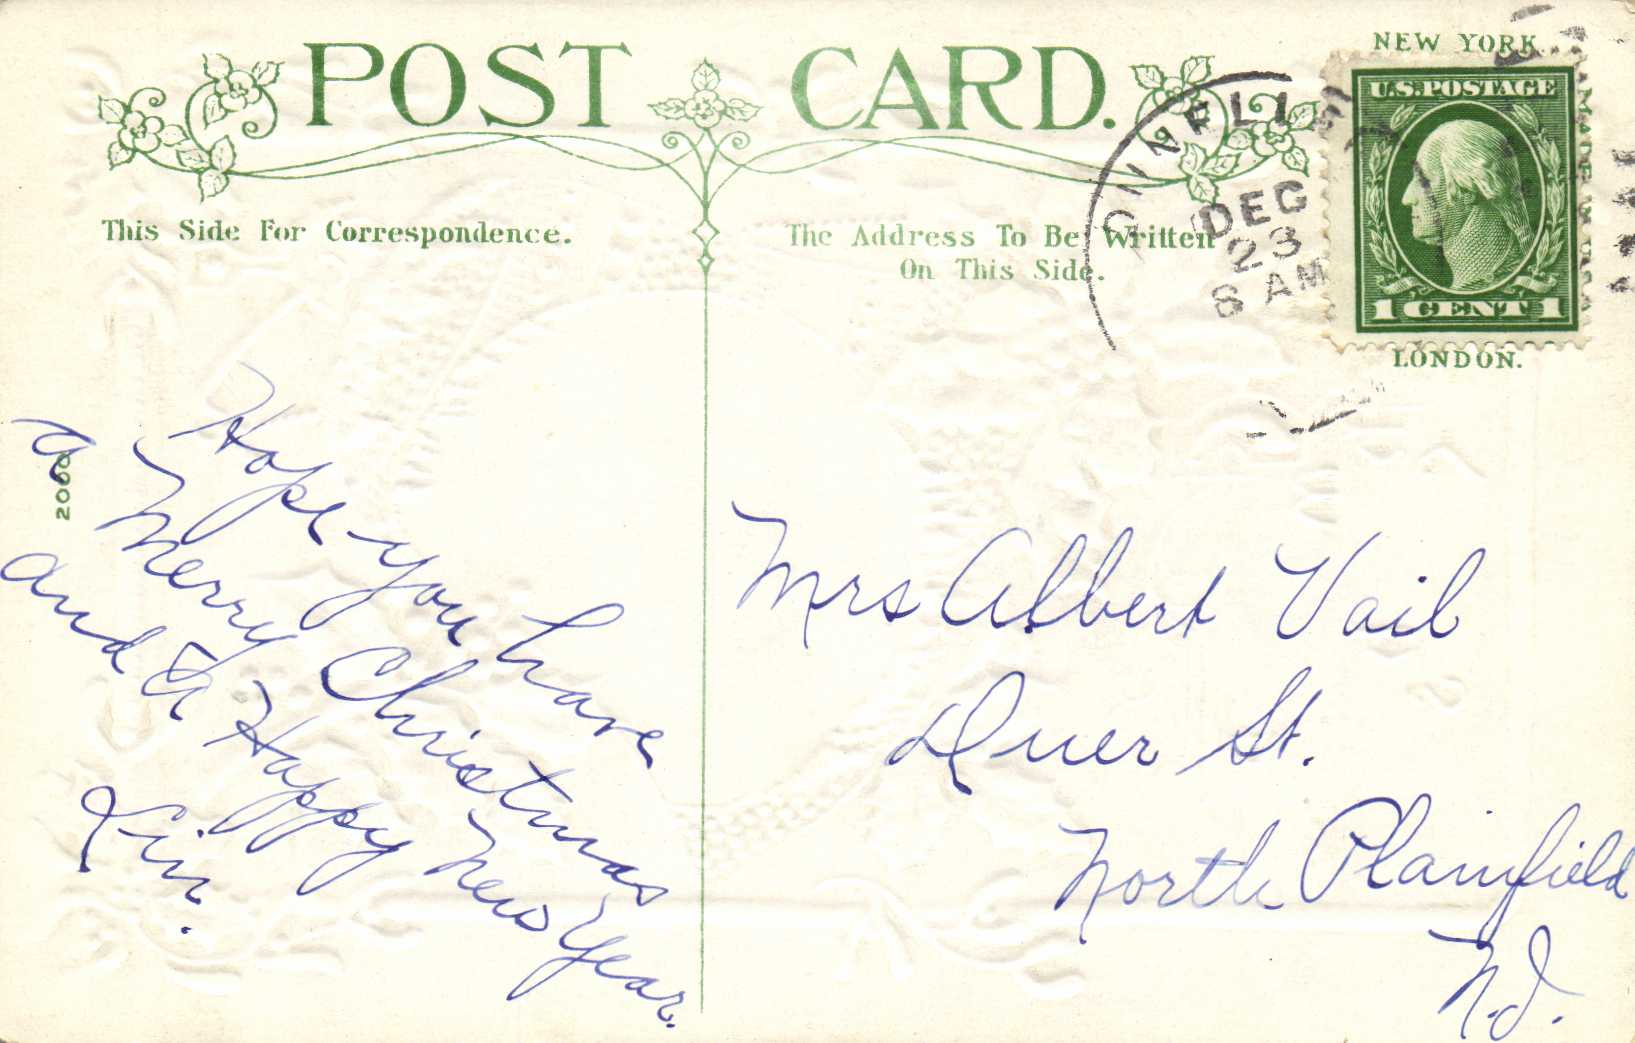 POST CARD.
NEW YORK
U.S. POSTAGE
1 CENT 1
LONDON.
DEC
23
8 AM
This Side For Correspondence.
The Address To Be Written
On This Side.
2000
Hope you have
a Merry Christmas
and a Happy New Year.
Lin.
Mrs Albert Vail
Duer St.
North Plainfield
N.J.